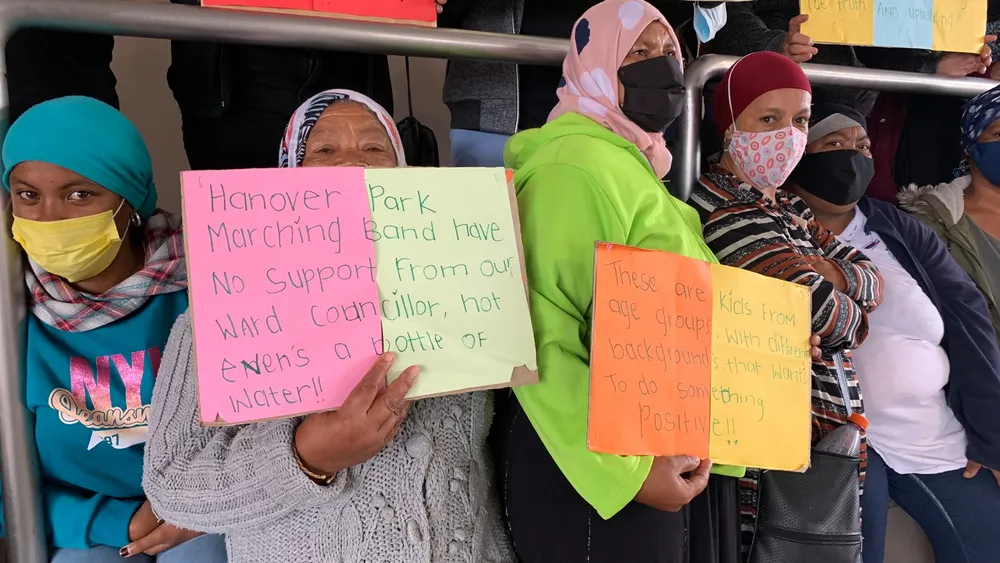 be truth AND upholding!!
Hanover Park
Marching Band have
No Support From our
Ward Councillor, not
even's a bottle of
Water!!
These are Kids From
age group's, With differen
backgrounds that want
To do something
Positive!!
NYC
Jeanswe
97